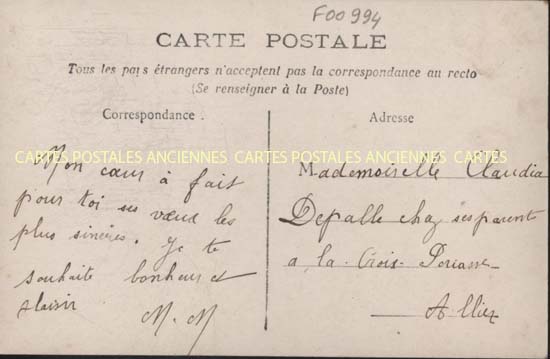 F00994
CARTE POSTALE
Tous les pays étrangers n'acceptent pas la correspondance au recto
(Se renseigner à la Poste)
Correspondance.
Adresse
CARTES POSTALES ANCIENNES CARTES POSTALES ANCIENNES CARTES
Mon cœur à fait
pour toi ses vœux les
plus sincères. Je te
souhaite bonheur et
plaisir
M. M
Mademoiselle Claudia
Depalle chez ses parent
a la Croix
Allier